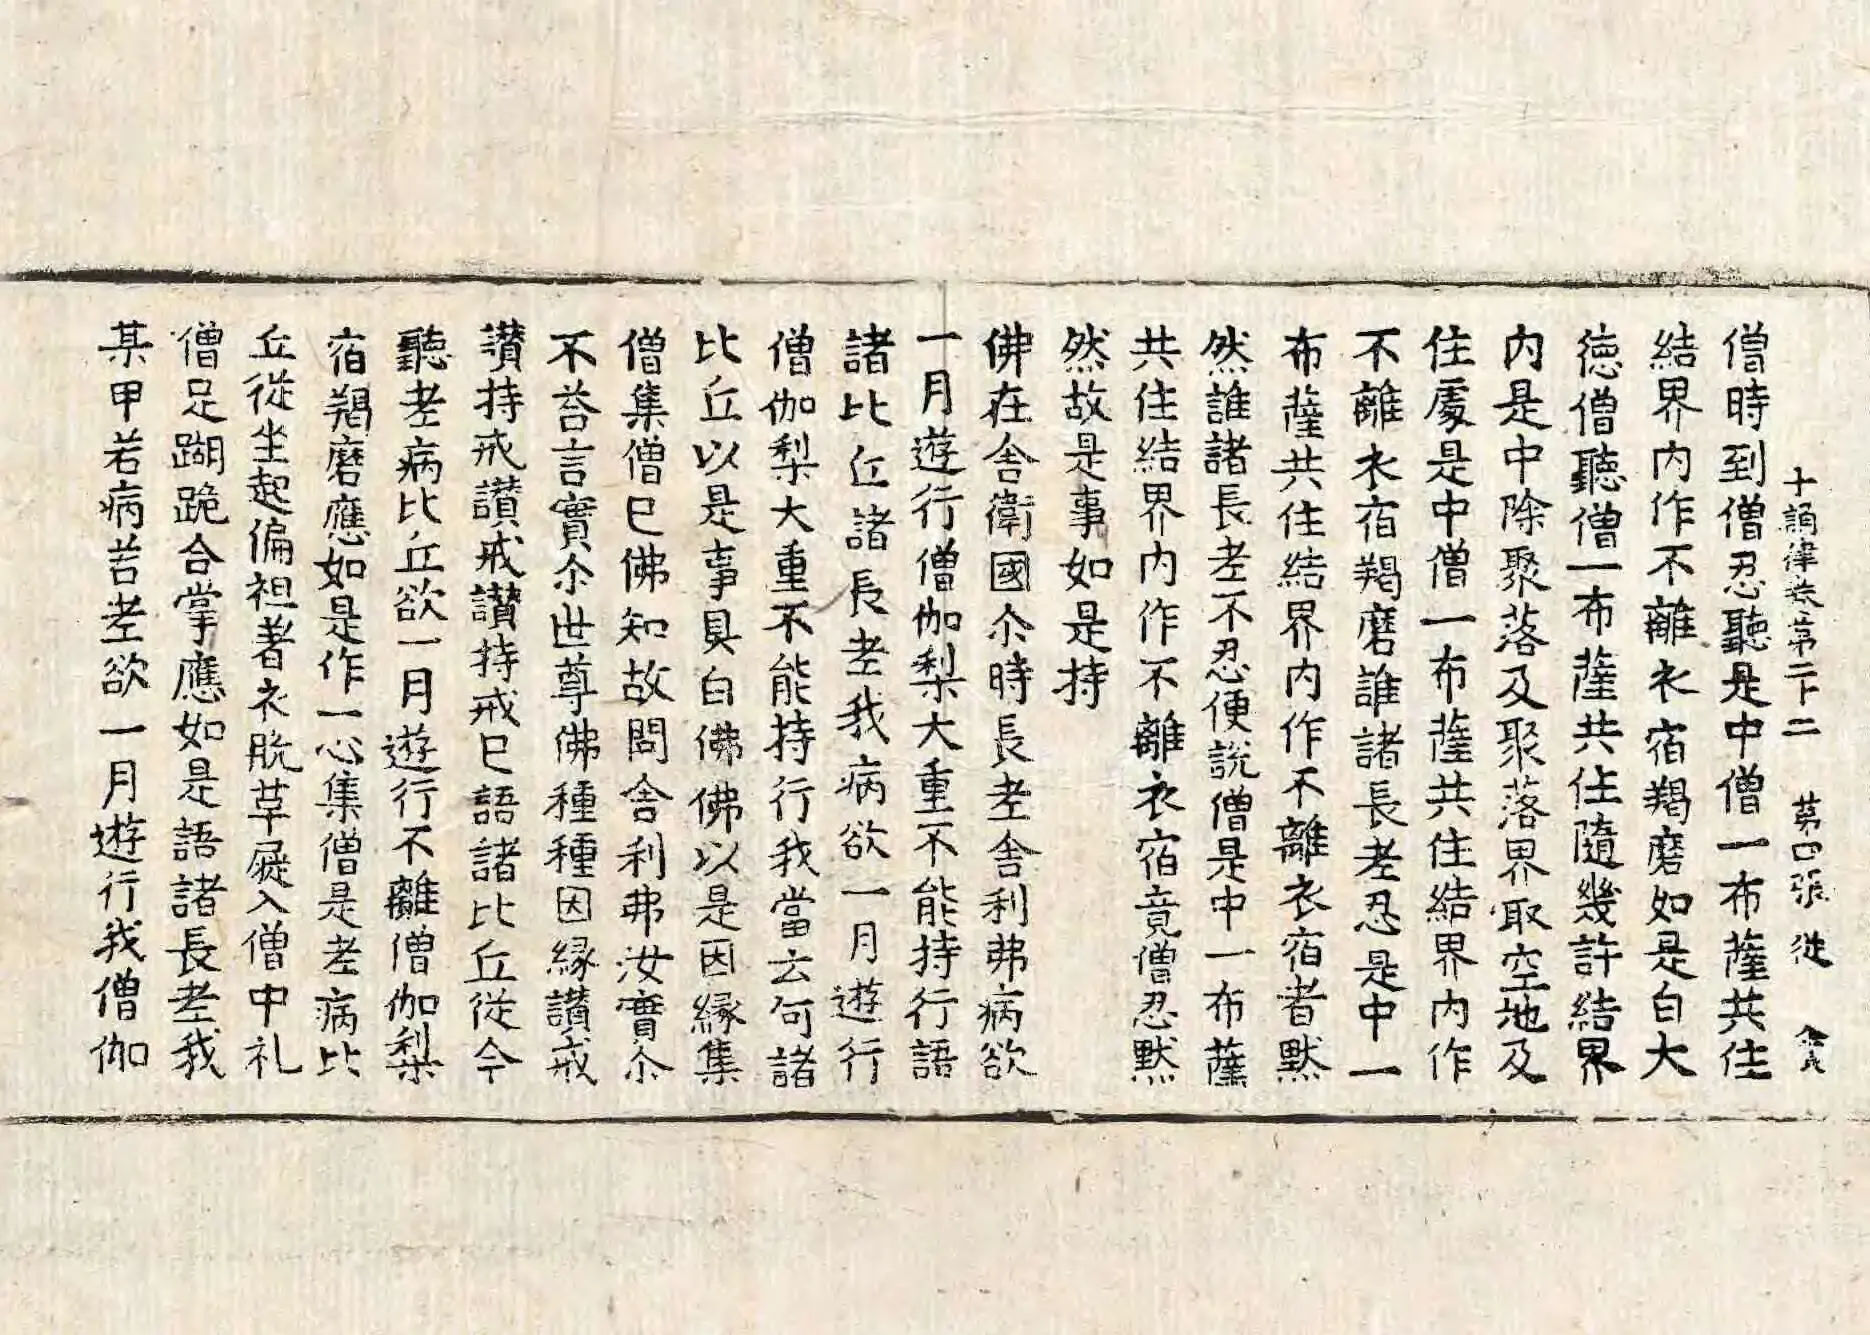 十誦律卷第二下二 第四張 徙
僧時到僧忍聽是中僧一布薩共住
結界內作不離衣宿羯磨如是白大
徳僧聽僧一布薩共住隨幾許結界
內是中除聚落及聚落界取空地及
住處是中僧一布薩共住結界內作
不離衣宿羯磨誰諸長老忍是中一
布薩共住結界內作不離衣宿者黙
然誰諸長老不忍便說僧是中一布薩
共住結界內作不離衣宿竟僧忍黙
然故是事如是持
佛在舍衛國尒時長老舍利弗病欲
一月遊行僧伽梨大重不能持行語
諸比丘諸長老我病欲一月遊行
僧伽梨大重不能持行我當云何諸
比丘以是事具白佛佛以是因緣集
僧集僧已佛知故問舍利弗汝實尒
不荅言實尒世尊佛種種因緣讃戒
讃持戒讃戒讃持戒已語諸比丘從今
聽老病比丘欲一月遊行不離僧伽梨
宿羯磨應如是作一心集僧是老病比
丘從坐起偏袒著衣脫草屣入僧中礼
僧足䠒跪合掌應如是語諸長老我
某甲若病若老欲一月遊行我僧伽